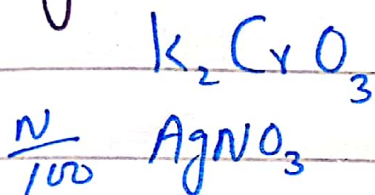 K₂CrO₃
N/100 AgNO₃